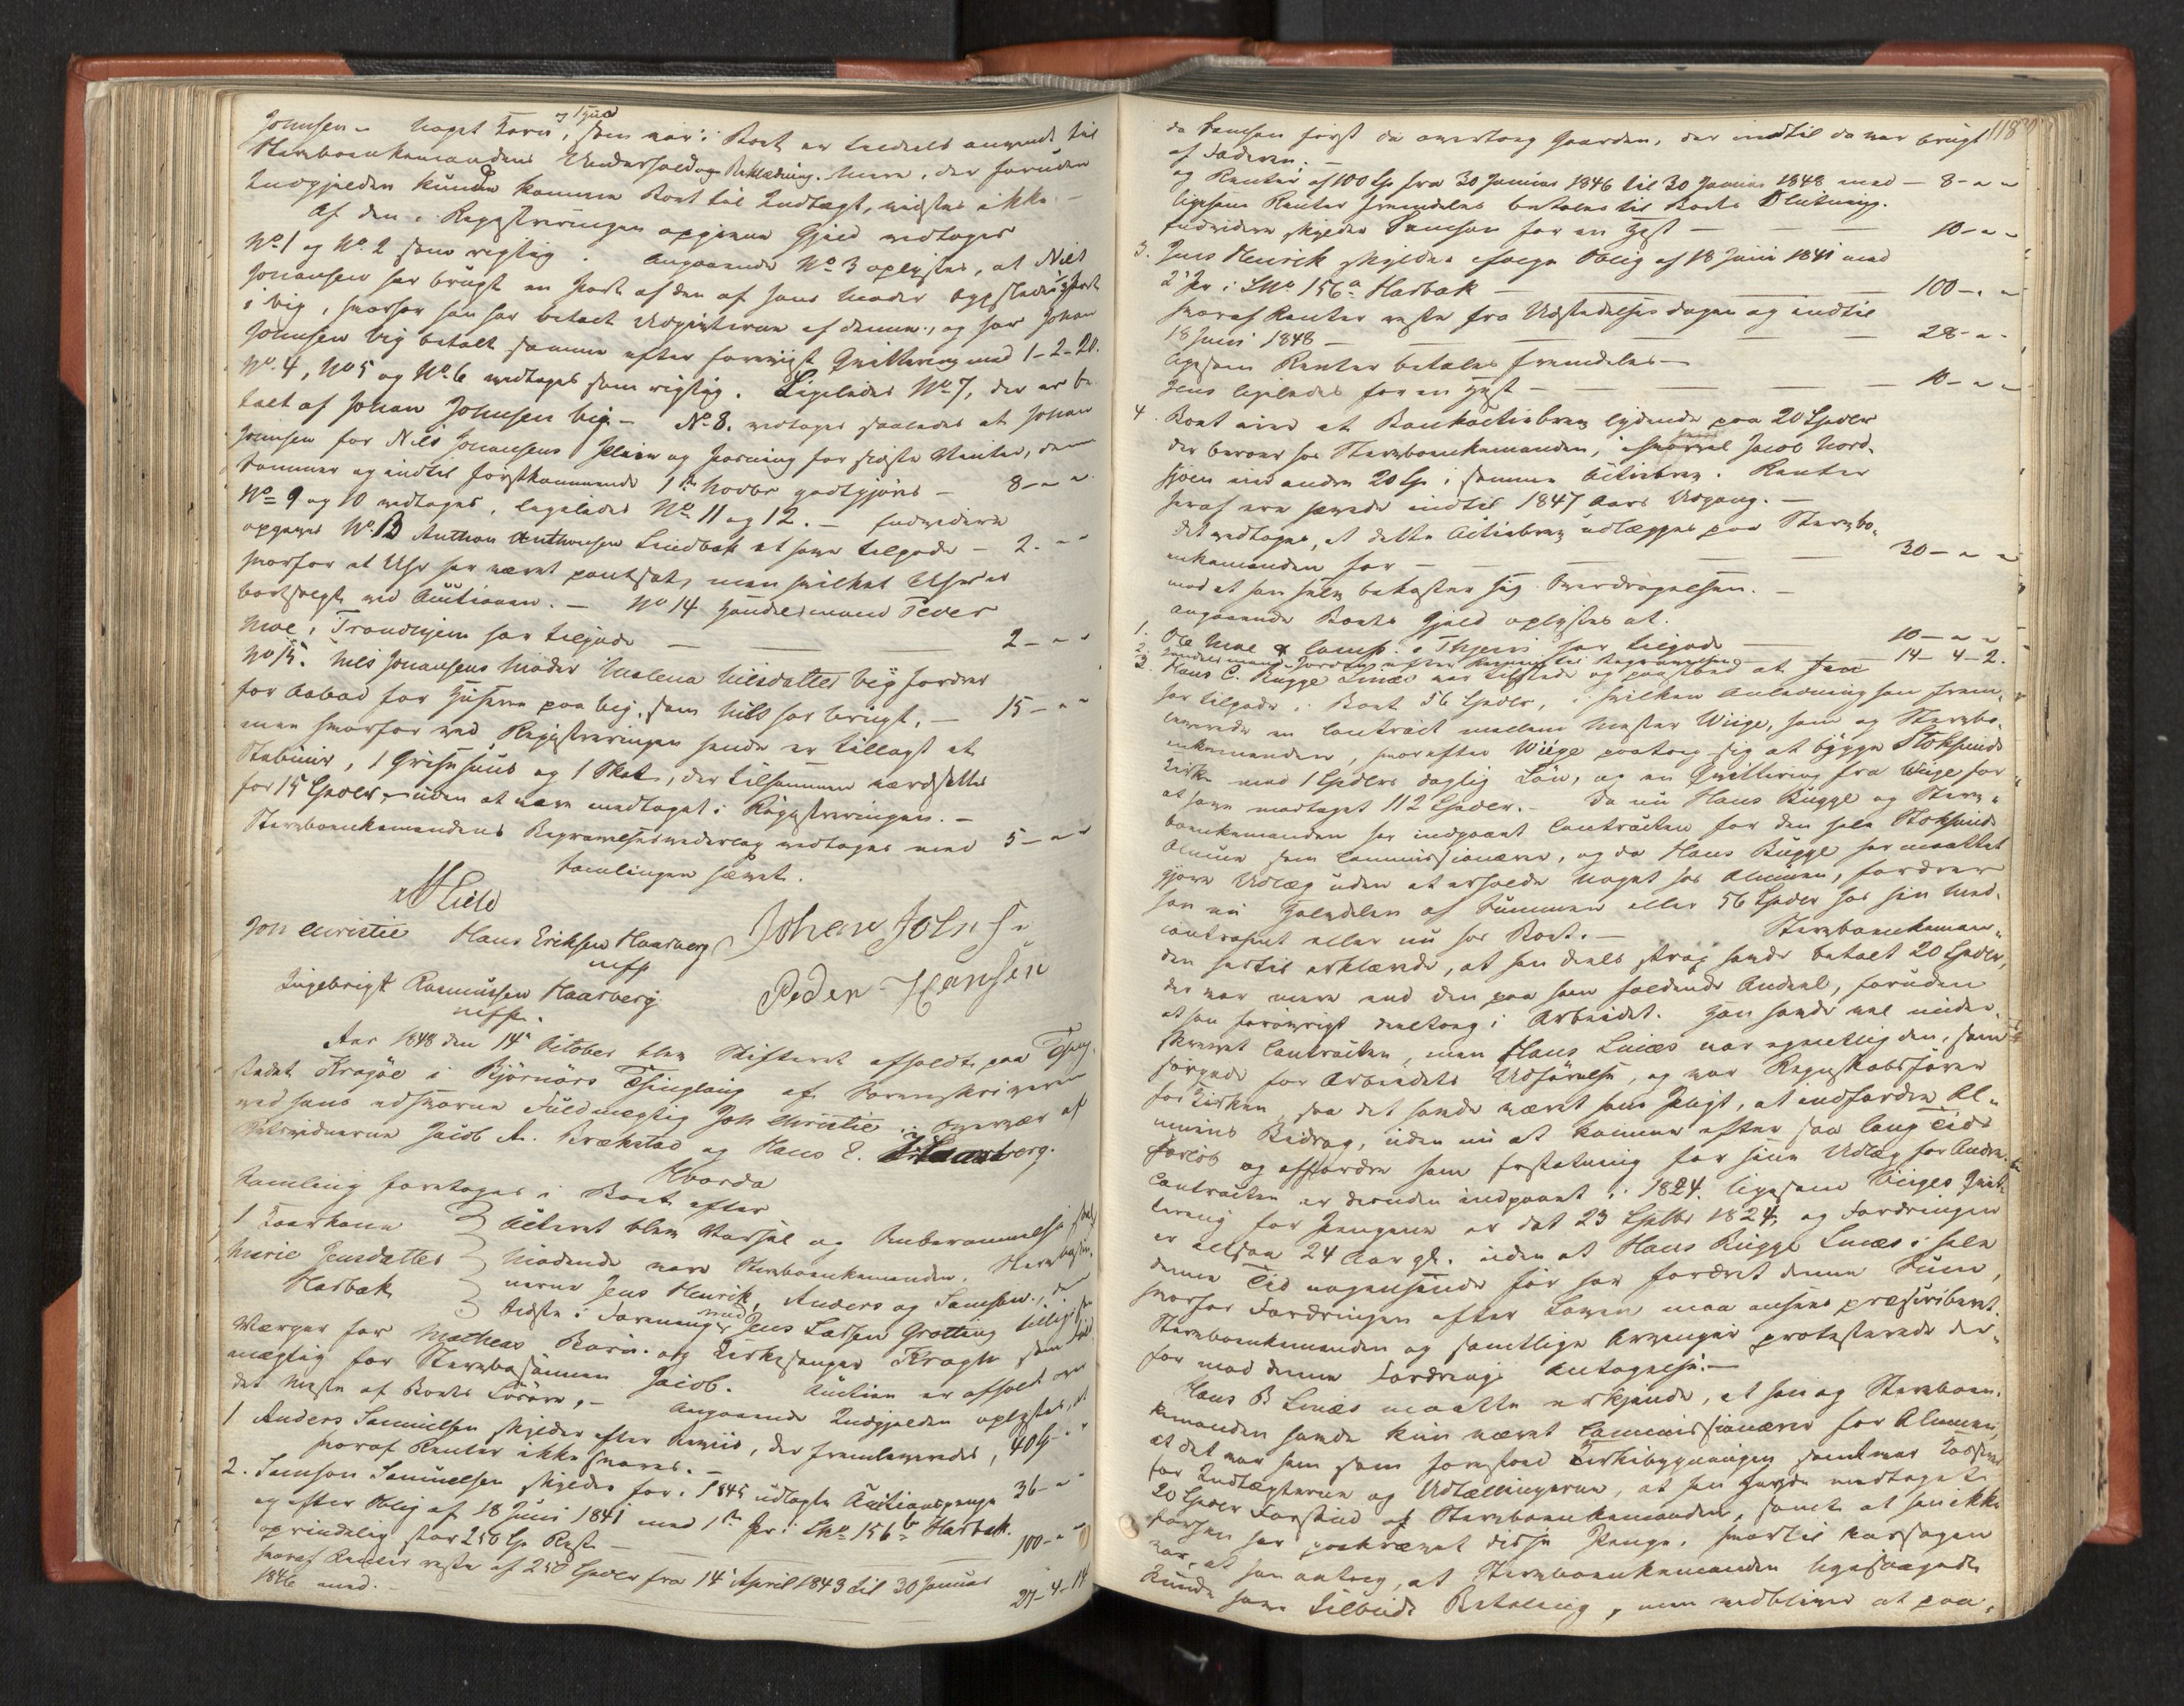 Johnsen - noget Korn, og Hud som var i Boet er tildeels anvendt til
Stervboenkemandens Underhold og Beklædning. Mere, der foruden
Indgjelden kunde komme Boet til Indtægt, vidstes ikke. -
Af den i Registreringen opgivne Gjæld vedtoges
No 1 og No 2 som rigtig. Angaaende No 3 oplystes, at Nils
Johansen har brugt en Part af den af hans Moder
i Vig, hvorfor han har betalt Udgivterne af denne, og har Johan
Johnsen Vig betalt samme efter foreviist Qvittering med 1-2-20.
No. 4, No 5 og No. 6 vedtoges som rigtig. Ligeledes No 7, der er be-
talt af Johan Johnsen Vig. - No 8. vedtoges saaledes at Johan
Johnsen for Nils Johansens Pleie og Foring for sidste Vinter, denne
Sommer og indtil førstkommende 1ste Novbr godtgjøres - 8 - " "
No 9 og 10 vedtoges, ligeledes No 11 og 12. - Endvidere
opgaves No. 13 Anthon Anthonsen Lindbak at have tilgode - 2 - " "
hvorfor et Uhr har været pantsat, men hvilket Uhr er
bortsolgt ved Auctionen. - No 14 Handelsmand Peder
Moe i Trondhjem har tilgode - 2 - " "
No 15. Nils Johansens Moder Malena Nilsdatter Vig fordrer
for Aabod for Husene paa Vig, som Nils har brugt, - 15 - " "
men hvorfor ved Registreringen hende er tillagt et
Stabuur, 1 Grisehuus og 1 Skot, der tilsammen værdsættes
for 15 Spdlr, uden at være medtaget i Registreringen. -
Stervboenkemandens Begravelsesudlæg vedtoges med 5 - " "
Samlingen hævet.
Lie
Jon Christie Hans Eriksen Haarberg Johan Johns
mfp
Ingebrigt Rasmussen Haarberg Peder Hansen
mfp.
Aar 1848 den 14de October blev Skifteret afholdt paa Thing-
stedet Kragøe i Bjørnørs Thinglaug af Sorenskriveren
ved hans edsvorne Fuldmægtig Jon Christie i Overvær af
Retsvidnerne Jacob A. Brækstad og Hans E. Haarberg.
Hvorda
Samling foretoges i Boet efter
1 Kaarkone Acteret blev Varsel og Berammelse
Marie Jensdatter Mødende vare Stervboenkemanden, Stervbosøn-
Harbak nerne Jens Henrik, Anders og Samson,
sidste i Forening med Jens Larsen Grotting tillige som
Værger for Matheas Barn. og Kirkesanger Kragh som Fuld-
mægtig for Stervbosønnen Jacob. Auction er afholdt over
det meste af Boets Løsøre. - Angaaende Indgjelden oplystes, at
1 Anders Samuelsen skylder efter Beviis, der fremlagdes, 40 - " "
hvoraf Renter ikke svares. -
2. Samson Samuelsen skylder for i 1845 udlagte Auctionspenge 36 - " "
og efter Oblig af 18 Juni 1841 med 1ste Pr i LNo 156b Harbak.
oprindelig stor 250 Sp Rest - 100 - " "
hvoraf Renter reste af 250 Spdlr fra 14 April 1843 til 30 Januar
1846 med. - 27 - 4 - 14
118
da Samson først da overtog Gaarden, der indtil da var brugt
af Faderen. -
og Renter af 100 Sp fra 30 Januar 1846 til 30 Januar 1848 med - 8 - " "
ligesom Renter fremdeles betales til Boets Slutning.
Endvidere skylder Samson for en Hest - 10 - " "
3. Jens Henrik skylder ifølge Oblig af 18 Juni 1841 med
2 Pr i LNo 156a Harbak - 100 - " "
hvoraf Renter reste fra Udstedelsesdagen og indtil
18 Juni 1848 - 28 - " -
ligesom Renter betales fremdeles -
Jens ligeledes for en Hest - 10 - " "
4. Boet eier et Bankactiebrev lydende paa 20 Spdlr
der beroer hos Stervboenkemanden, i hvorvel Jacob Nord-
sjoen eier andre 20 Sp i samme Actiebrev. Renter
heraf ere hævede indtil 1847 Aars Udgang. -
Det vedtoges, at dette Actiebrev udlægges paa Stervbo-
enkemanden for - 30 - " "
mod at han selv bekoster sig Overdragelsen. -
Angaaende Boets Gjæld oplystes at.
1. Ole Moe & Comp. i Thjem har tilgode - 10 - " "
2. Handelsmand Jordan efter Regning til Begravelsen - 14 - 4 - 2.
3. Hans C. Bugge Lines var tilstede og paastod at han
har tilgode i Boet 56 Spdlr, i hvilken Anledning han frem-
leverede en Contract mellem Mester Wiige, ham og Stervbo-
enkemanden, hvorefter Wiige paatog sig at bygge Stoksunds
Kirke mod 1 Spdlrs daglig Løn, og en Qvittering fra Wiige for
at have modtaget 112 Spdlr. - Da nu Hans Bugge og Sterv-
boenkemanden har indgaaet Contracten for den hele Stoksunds
Almue som Commissionærer, og da Hans Bugge har maattet
gjøre Udlæg uden at erholde noget hos Almuen, fordrer
han nu Halvdelen af Summen eller 56 Spdlr hos sin Med-
contrahent eller nu hos Boet. - Stervboenkeman-
den hertil erklærede, at han deels strax havde betalt 20 Spdlr,
der var mere end den paa ham faldende Andeel, foruden
at han forøvrigt deeltog i Arbeidet. Han havde vel under-
skrevet Contracten, men Hans Lines var egentlig den, som
sørgede for Arbeidets Udførelse, og var Regnskabsfører
for Kirken, saa det havde været hans Pligt, at indfordre Al-
muens Bidrag, uden nu at komme efter saa lang Tids
Forløb og affordre ham Erstatning for sine Udlæg for Andre.
Contracten er desuden indgaaet i 1824. ligesom Wiiges Qvit-
tering for Pengene er dat 23 Septbr 1824, og Fordringen
er altsaa 24 Aar gl. uden at Hans Bugge Lines i hele
denne Tid nogensinde før har fordret denne Sum,
hvorfor Fordringen efter Loven maa ansees præscriberet.
Stervboenkemanden og samtlige Arvinger protesterede der-
for mod denne Fordrings Antagelse. -
Hans B Lines maatte erkjende, at han og Stervboen-
kemanden havde kun været Commissionærer for Almuen,
at det var ham som forestod Kirkebygningen samt var Kasserer
for Indtægterne og Udtællingerne, at han havde modtaget
20 Spdlr Forskud af Stervboenkemanden, samt at han ikke
før har paakrævet disse Penge, hvortil Aarsagen
var, at han antog, at Stervboenkemanden ligesaagodt
kunde have tilbudt Betaling, men vedblev at paa-